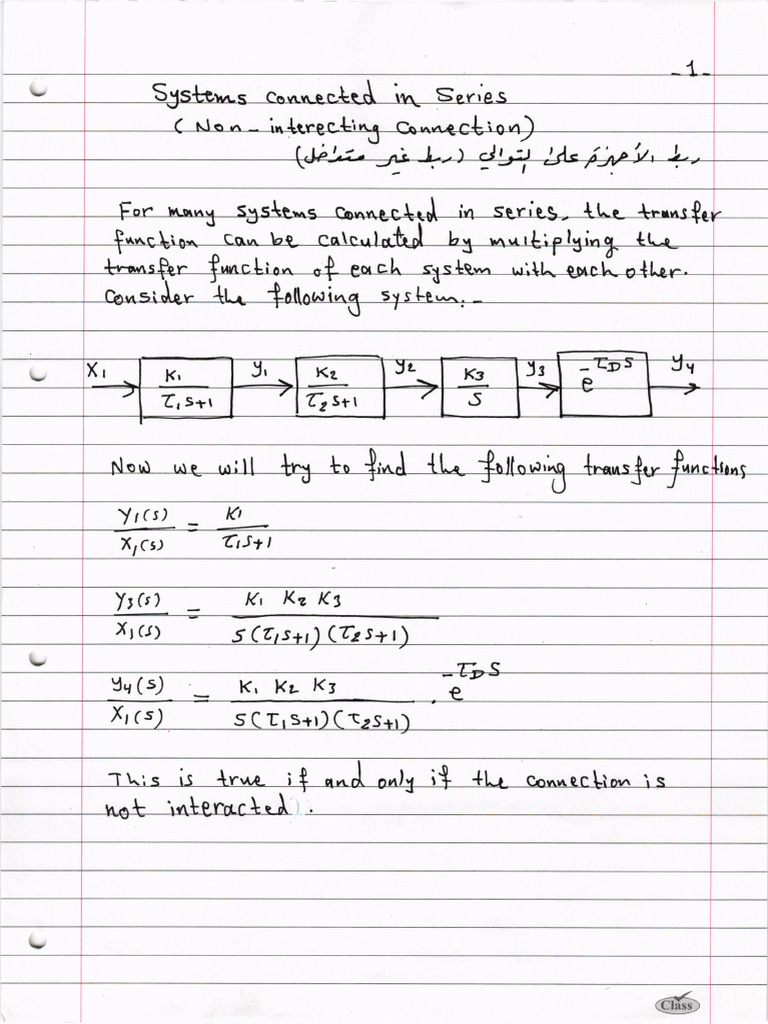 -1-
Systems connected in Series
(Non-interecting connection)
ربط الأجهزة على التوالي (ربط غير متداخل)
For many systems connected in series, the transfer
function can be calculated by multiplying the
transfer function of each system with each other.
Consider the following system:-
X1 K1/(τ1S+1) Y1 K2/(τ2S+1) Y2 K3/S Y3 e^(-τDS) Y4
Now we will try to find the following transfer functions
Y1(S)/X1(S) = K1/(τ1S+1)
Y3(S)/X1(S) = K1 K2 K3/(S(τ1S+1)(τ2S+1))
Y4(S)/X1(S) = K1 K2 K3/(S(τ1S+1)(τ2S+1)) . e^(-τDS)
This is true if and only if the connection is
not interacted.
Class